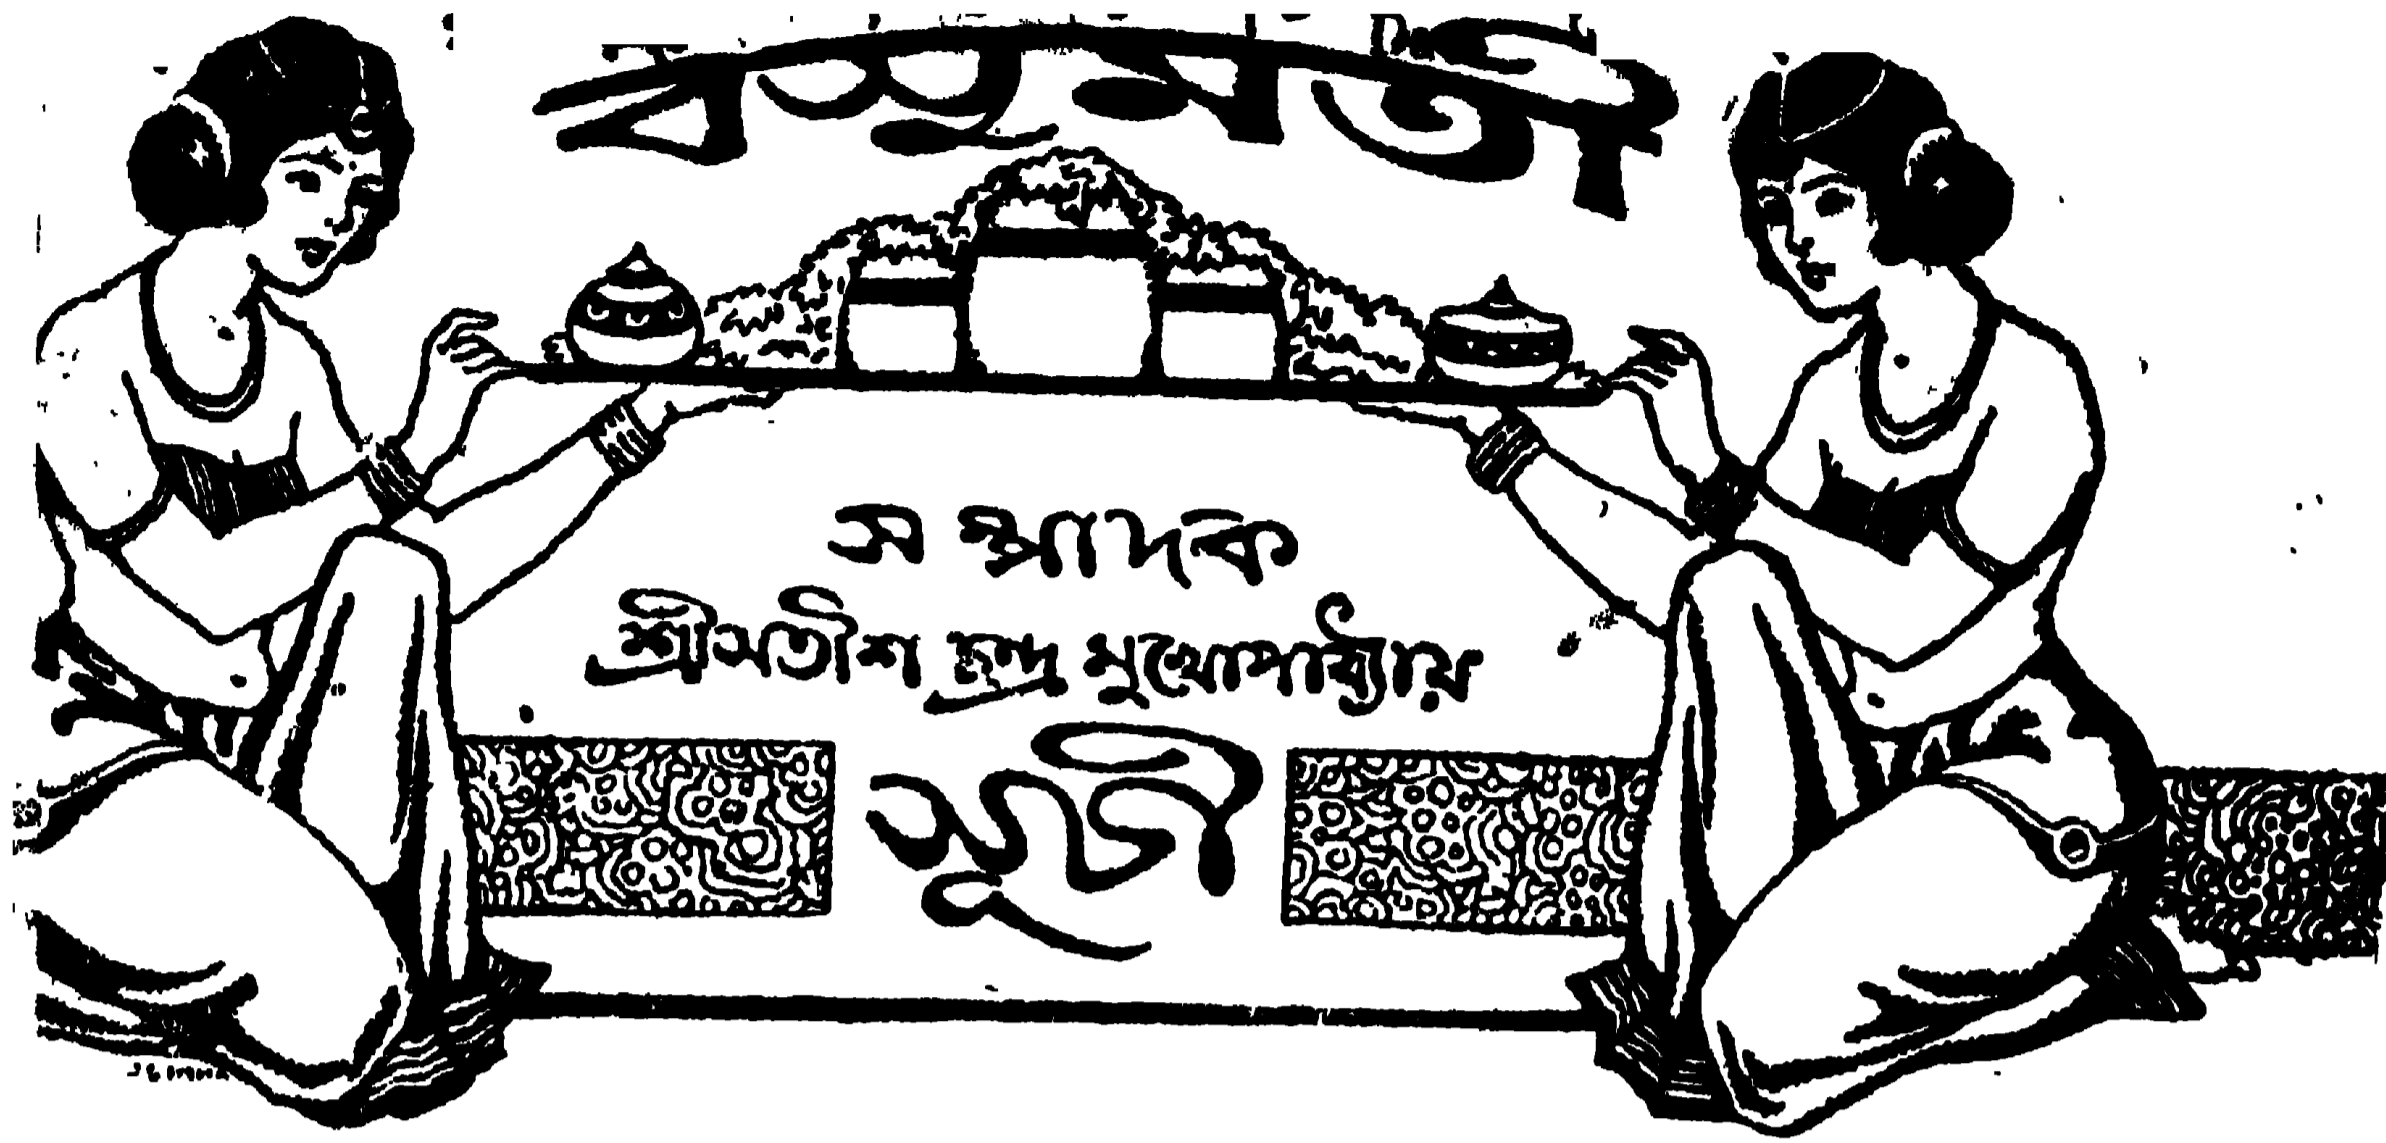 বসুমতী
সম্পাদক
শ্রীসতীশ চন্দ্র মুখোপাধ্যায়
সূচী